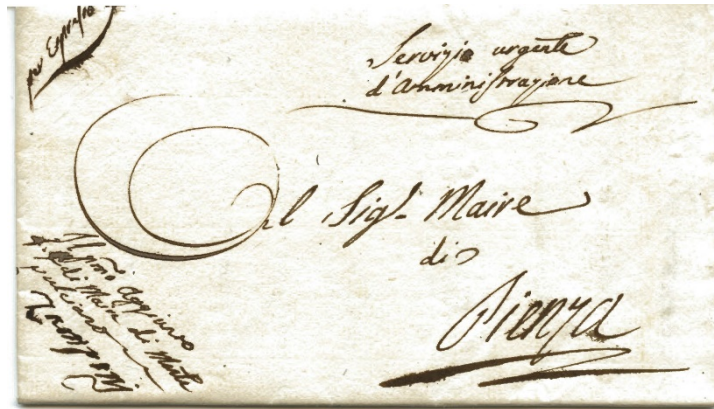 per Espresso
Servizio urgente
d'Amministrazione
Al Sig.r Maire
di
Pienza
Il primo Aggiunto
di Monte
pulciano